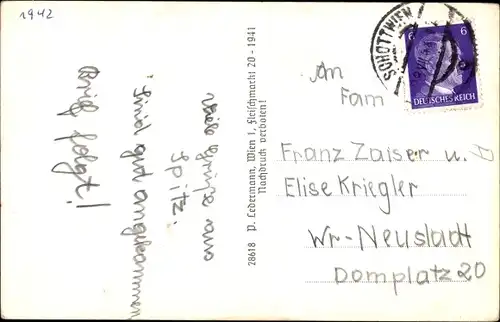 1942
Viele Grüße aus
Spitz.
Sind gut angekommen
Brief folgt!
28618 P. Ledermann, Wien 1, Fleischmarkt 20 - 1941
Nachdruck verboten!
SCHOTTWIEN
6 6
DEUTSCHES REICH
An
Fam
Franz Zaiser u.
Elise Kriegler
Wr-Neustadt
Domplatz 20